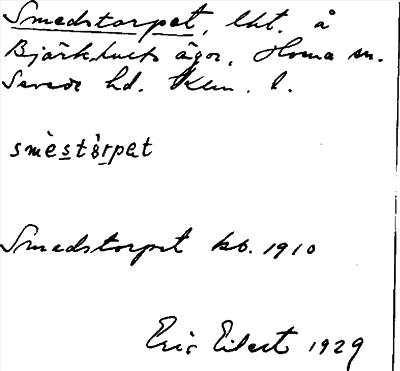 Smedstorpet, lht. å
Björkhults ägor, Horna sn.
Sevede hd. Klm. l.
smèstòrpet
Smedstorpet kb. 1910
Eric Eilert 1929